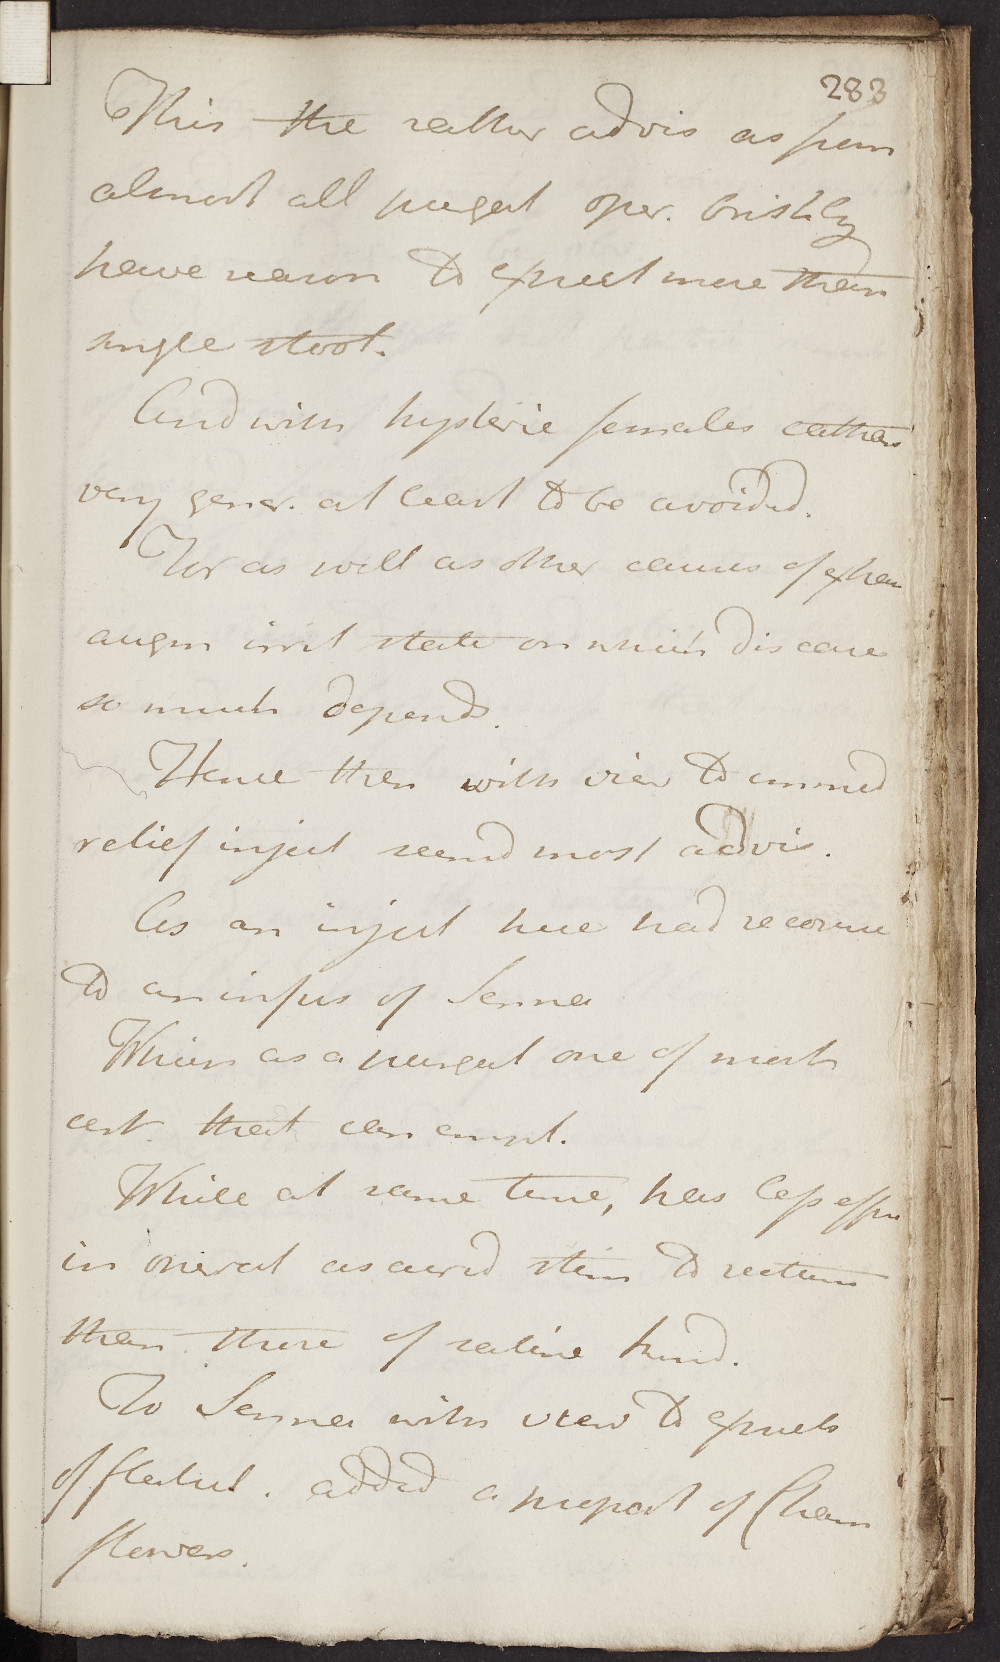 283
This the rather advis as from
almost all purgat oper. briskly
have reason to expect more than
single stool.
And with hysteric females cathar
very gener. at least to be avoided.
For as well as other causes of exhau
augm irrit state on which disease
so much depends.
Hence then with view to immed
relief inject seemd most advis.
As an inject here had recourse
to an infus of Senna
Which as a purgat one of most
cert that can empl.
While at same time, has less effec
in operat as acrid stim to rectum
than those of saline kind.
To Senna with view to expuls
of flatus. added a proport of Cham
flowers.